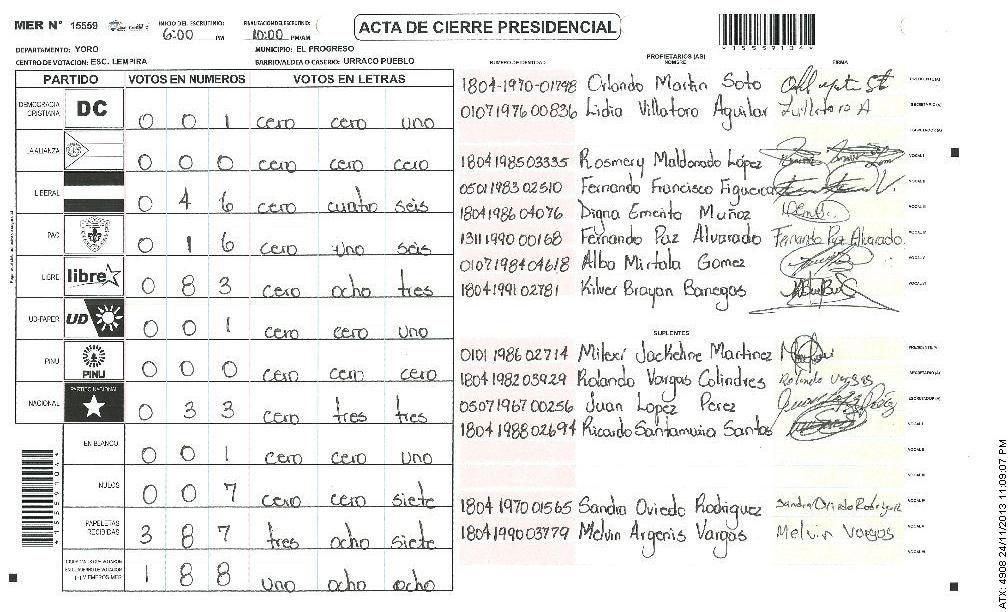 MER N° 15559 INICIO DEL ESCRUTINIO: 6:00 PM FINALIZACION ESCRUTINIO: 10:00 PM/AM ACTA DE CIERRE PRESIDENCIAL
DEPARTAMENTO: YORO MUNICIPIO: EL PROGRESO
CENTRO DE VOTACION: ESC. LEMPIRA BARRIO/ALDEA O CASERIO: URRACO PUEBLO
PARTIDO VOTOS EN NUMEROS VOTOS EN LETRAS
DEMOCRACIA CRISTIANA DC 0 0 1 cero cero uno
LA ALIANZA 0 0 0 cero cero cero
LIBERAL 0 4 6 cero cuatro seis
PAC 0 1 6 cero uno seis
LIBRE libre 0 8 3 cero ocho tres
UD-FAPER UD 0 0 1 cero cero uno
PINU PINU 0 0 0 cero cero cero
NACIONAL PARTIDO NACIONAL 0 3 3 cero tres tres
EN BLANCO 0 0 1 cero cero uno
NULOS 0 0 7 cero cero siete
PAPELETAS RECIBIDAS 3 8 7 tres ocho siete
1 8 8 uno ocho ocho
NUMERO DE IDENTIDAD PROPIETARIOS (AS) NOMBRE FIRMA
1804-1970-01798 Orlando Martin Soto
0107197600836 Lidia Villatoro Aguilar
1804198503335 Rosmery Maldonado López
0501198302510 Fernando Francisco Figueroa
1804198604076 Digna Emerita Muñoz
1311199000168 Fernando Paz Alvarado Fernando Paz Alvarado.
0107198404618 Alba Mirtala Gomez
1804199102781 Kilver Brayan Banegas
SUPLENTES
0101198602714 Milexi Jackeline Martinez
1804198203929 Rolando Vargas Colindres Rolando Vargas
0507196700256 Juan Lopez Perez
1804198802694 Ricardo Santamuria Santos
1804197001565 Sandra Oviedo Rodriguez Sandra Oviedo Rodriguez
1804199003779 Melvin Argenis Vargas Melvin Vargas
15559134
ATX: 4908 24/11/2013 11:09:07 PM